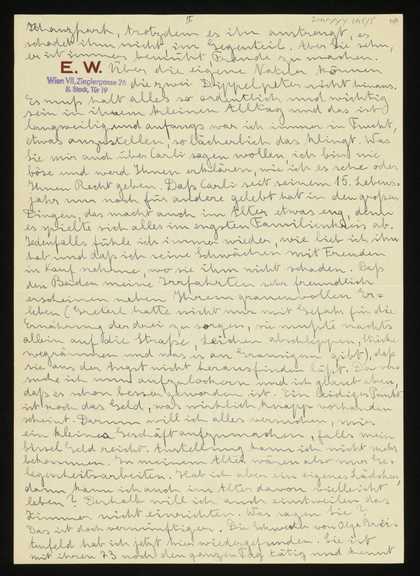 II
Schanzpark, trotzdem es ihn anstrengt, es
schadet ihm nicht im Gegenteil. Aber Sie sehn,
er ist immer bemüht Freude zu machen.
E. W.
Wien VII, Zieglergasse
II. Stock, Tür 19
Über die eigene Natur können
die zwei Doppelpeter nicht hinaus.
Es muß halt alles so ordentlich und wichtig
sein in ihrem kleinen Alltag und das ist
langweilig und anfangs war ich immer in Furcht,
etwas anzustellen, so lächerlich das klingt. Was
Sie mir auch über Carli sagen wollen, ich bin nie
böse und werd Ihnen erklären, wie ich es sehe oder
Ihnen Recht geben. Daß Carli seit seinem 15. Lebens-
jahr nur noch für andere gelebt hat in den großen
Dingen, das macht auch im Alter etwas eng, denn
es spielte sich alles im engsten Familienkreis ab.
Jedenfalls fühle ich immer wieder, wie lieb ich ihn
hab und daß ich seine Schwächen mit Freuden
in Kauf nehme, wo sie ihm nicht schaden. Daß
den Beiden meine Irrfahrten sehr freundlich
erscheinen neben Ihrem grauenvollen Er-
leben (Greterl hatte nicht nur mit Gefahr für die
Ernährung der drei zu sorgen, sie mußte nachts
allein auf die Straße, Leichen abschleppen, Stücke
wegräumen und was es an Grausigem gibt), daß
sie aus der Angst nicht herausfinden läßt. Da ver-
suche ich nun aufzulockern und ich glaube eben,
daß es schon besser geworden ist. Ein leidiger Punkt
ist noch das Geld, was wirklich knapp vorhanden
scheint. Darum will ich alles versuchen, mir
ein kleines Geschäft aufzumachen, falls mein
bissel Geld reicht. Anstellung kann ich nicht mehr
bekommen. In meinem Alter wären also nur Ge-
legenheitsarbeiten. Hab ich aber ein eigenes Lädchen,
dann kann ich auch im Alter davon vielleicht
leben? Deshalb will ich auch einstweilen das
Zimmer nicht einrichten. Was sagen Sie?
Das ist doch vernünftiger. Die Schwester von Olga
hab ich jetzt hier wiedergefunden. Sie ist
mit ihren 73 noch den ganzen Tag tätig und kennt